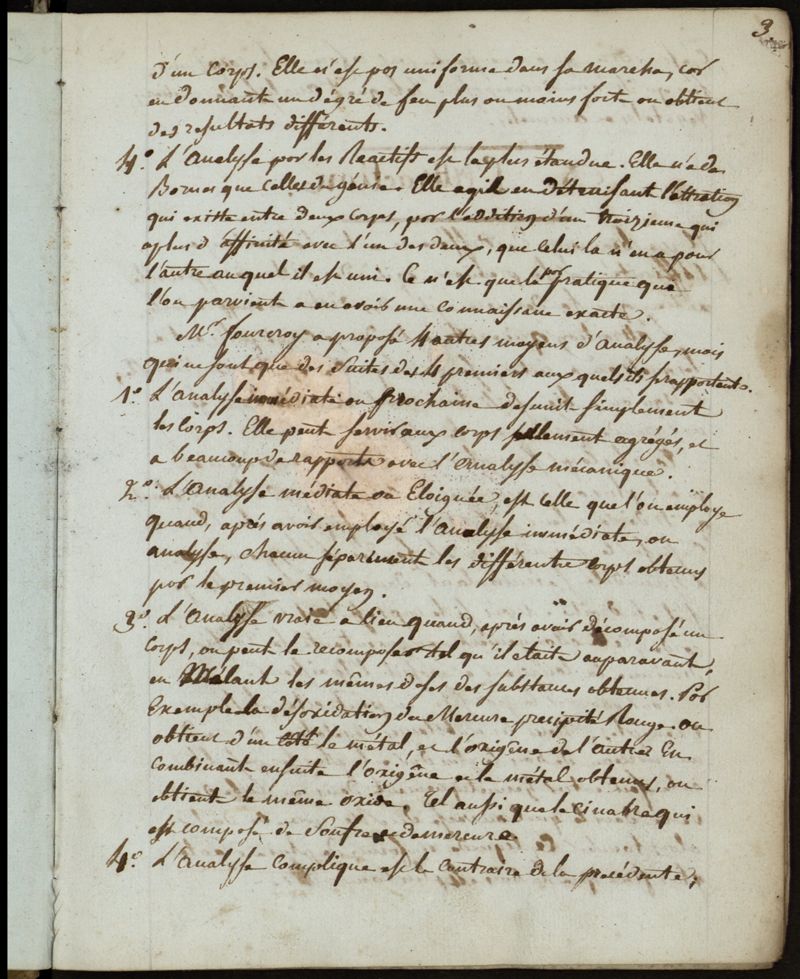 3
d'un Corps. Elle n'est pas uniforme dans sa marche, car
en donnant un dégré de feu plus ou moins forte on obtient
des resultats différents.
4.° L'Analyse par les Reactifs est la plus étandue. Elle n'a de
Bornes que celles du génie. Elle agit en détruisant l'attraction
qui existe entre deux corps, par l'addition d'un troizieme qui
a plus d'affinité avec l'un des deux, que celui la n'en a pour
l'autre auquel il est uni. Ce n'est que par la pratique que
l'on parvient a en avoir une connaissane exacte.
Mr. fourcroy a proposé 4 autres moyens d'Analyse, mais
qui ne sont que des suites des 4 premiers aux quels ils se rapportent.
1.° L'Analyse immédiate ou Prochaine desunit simplement
les Corps. Elle peut servir aux corps agrégés, et
a beaucoup de rapports avec l'Analyse mécanique.
2.° L'Analyse médiate ou Eloignée, est celle que l'on employe
quand, aprés avoir employé l'Analyse immédiate, on
analyse, chacun séparément les différents corps obtenus
par le premier moyen.
3.° L'Analyse vraie a lieu quand, aprés avoir décomposé un
Corps, on peut le recomposer tel qu'il etait auparavant,
en Mélant les mêmes doses des substances obtenues. Par
Exemple la désoxidation du Mercure precipité Rouge. on
obtient d'un coté le métal, et l'oxigêne de l'autre. En
combinant ensuite l'oxigêne et le métal obtenus, on
obtient le même oxide. Tel aussi que le cinabre qui
est composé de Soufre et de mercure.
4.° L'Analyse Complique est le contraire de la precédente;